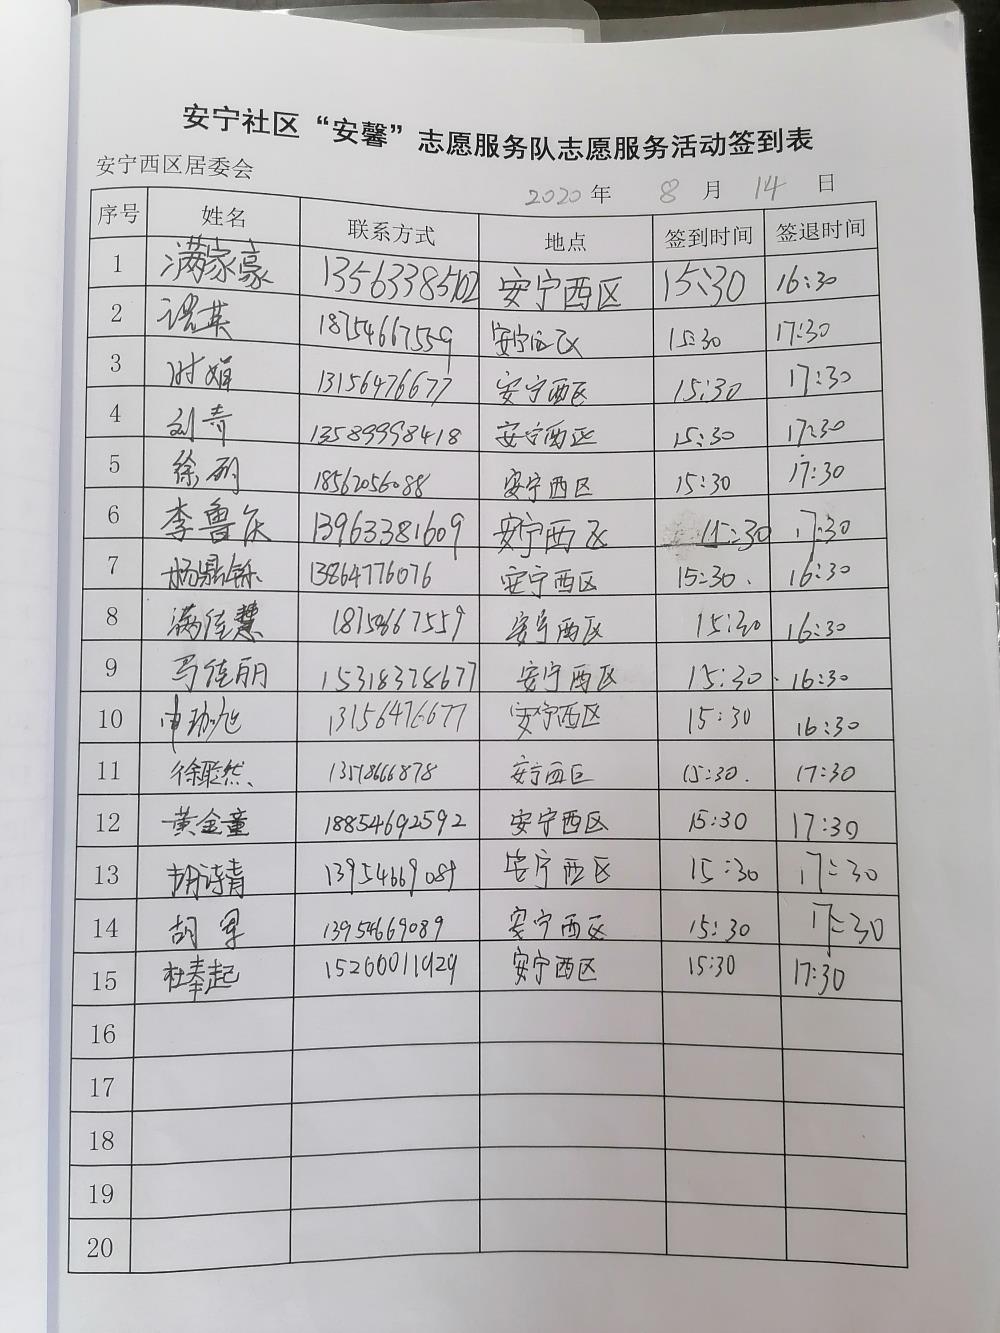 安宁社区“安馨”志愿服务队志愿服务活动签到表
安宁西区居委会 2020 年 8 月 14 日
序号 姓名 联系方式 地点 签到时间 签退时间
1 满家豪 13563385102 安宁西区 15:30 16:30
2 英 18754667559 安宁西区 15:30 17:30
3 时娟 13156476677 安宁西区 15:30 17:30
4 刘青 13589998418 安宁西区 15:30 17:30
5 徐 18562056088 安宁西区 15:30 17:30
6 李鲁庆 13963381609 安宁西区 15:30 17:30
7 杨鼎铄 13864776076 安宁西区 15:30. 16:30
8 满佳慧 18754667559 安宁西区 15:30 16:30
9 马佳丽 15318378677 安宁西区 15:30. 16:30
10 申 13156476677 安宁西区 15:30 16:30
11 徐聪然、 安宁西区 15:30. 17:30
12 黄金童 18854692592 安宁西区 15:30 17:30
13 胡诗青 13954669089 安宁西区 15:30 17:30
14 胡军 13954669089 安宁西区 15:30 17:30
15 杜奉起 15260011929 安宁西区 15:30 17:30
16
17
18
19
20